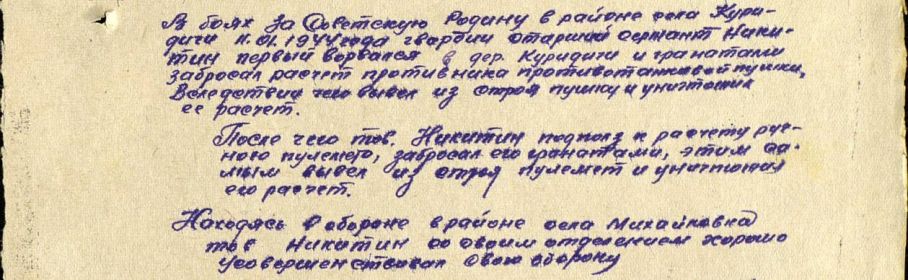 В боях за Советскую Родину в районе села Кури-
дичи 11.01.1944 года гвардии старший сержант Ники-
тин первый ворвался в дер. Куридичи и гранатами
забросал расчет противника противотанковой пушки,
Вследствии чего вывел из строя пушку и уничтожил
ее расчет.
После чего тов. Никитин подполз к расчету руч-
ного пулемета, забросал его гранатами, этим са-
мым вывел из строя пулемет и уничтожил
его расчет.
Находясь в обороне в районе села Михайловка
тов Никитин со своим отделением хорошо
усовершенствовал свою оборону